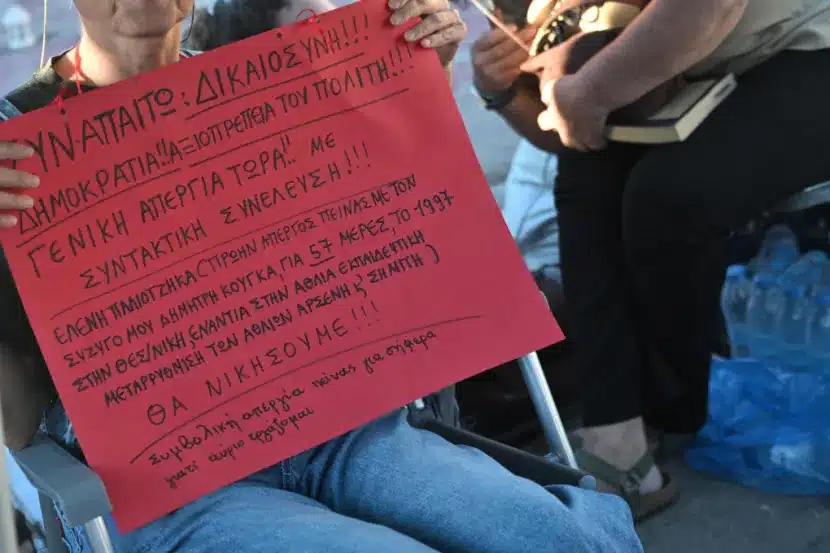 ΣΥΝ-ΑΠΑΙΤΩ: ΔΙΚΑΙΟΣΥΝΗ!!!
ΔΗΜΟΚΡΑΤΙΑ!! ΑΞΙΟΠΡΕΠΕΙΑ ΤΟΥ ΠΟΛΙΤΗ!!!
ΓΕΝΙΚΗ ΑΠΕΡΓΙΑ ΤΩΡΑ!! ΜΕ
ΣΥΝΤΑΚΤΙΚΗ ΣΥΝΕΛΕΥΣΗ!!!
ΕΛΕΝΗ (ΠΡΩΗΝ ΑΠΕΡΓΟΣ ΠΕΙΝΑΣ ΜΕ ΤΟΝ
ΣΥΖΥΓΟ ΜΟΥ ΔΗΜΗΤΡΗ ΚΟΥΓΚΑ, ΓΙΑ 57 ΜΕΡΕΣ, ΤΟ 1997
ΣΤΗΝ ΘΕΣ/ΝΙΚΗ, ΕΝΑΝΤΙΑ ΣΤΗΝ ΑΘΛΙΑ ΕΚΠΑΙΔΕΥΤΙΚΗ
ΜΕΤΑΡΡΥΘΜΙΣΗ ΤΩΝ ΑΘΛΙΩΝ ΑΡΣΕΝΗ Κ' ΣΗΜΙΤΗ)
ΘΑ ΝΙΚΗΣΟΥΜΕ!!!
Συμβολική απεργία πείνας για σήμερα
γιατί αύριο εργάζομαι